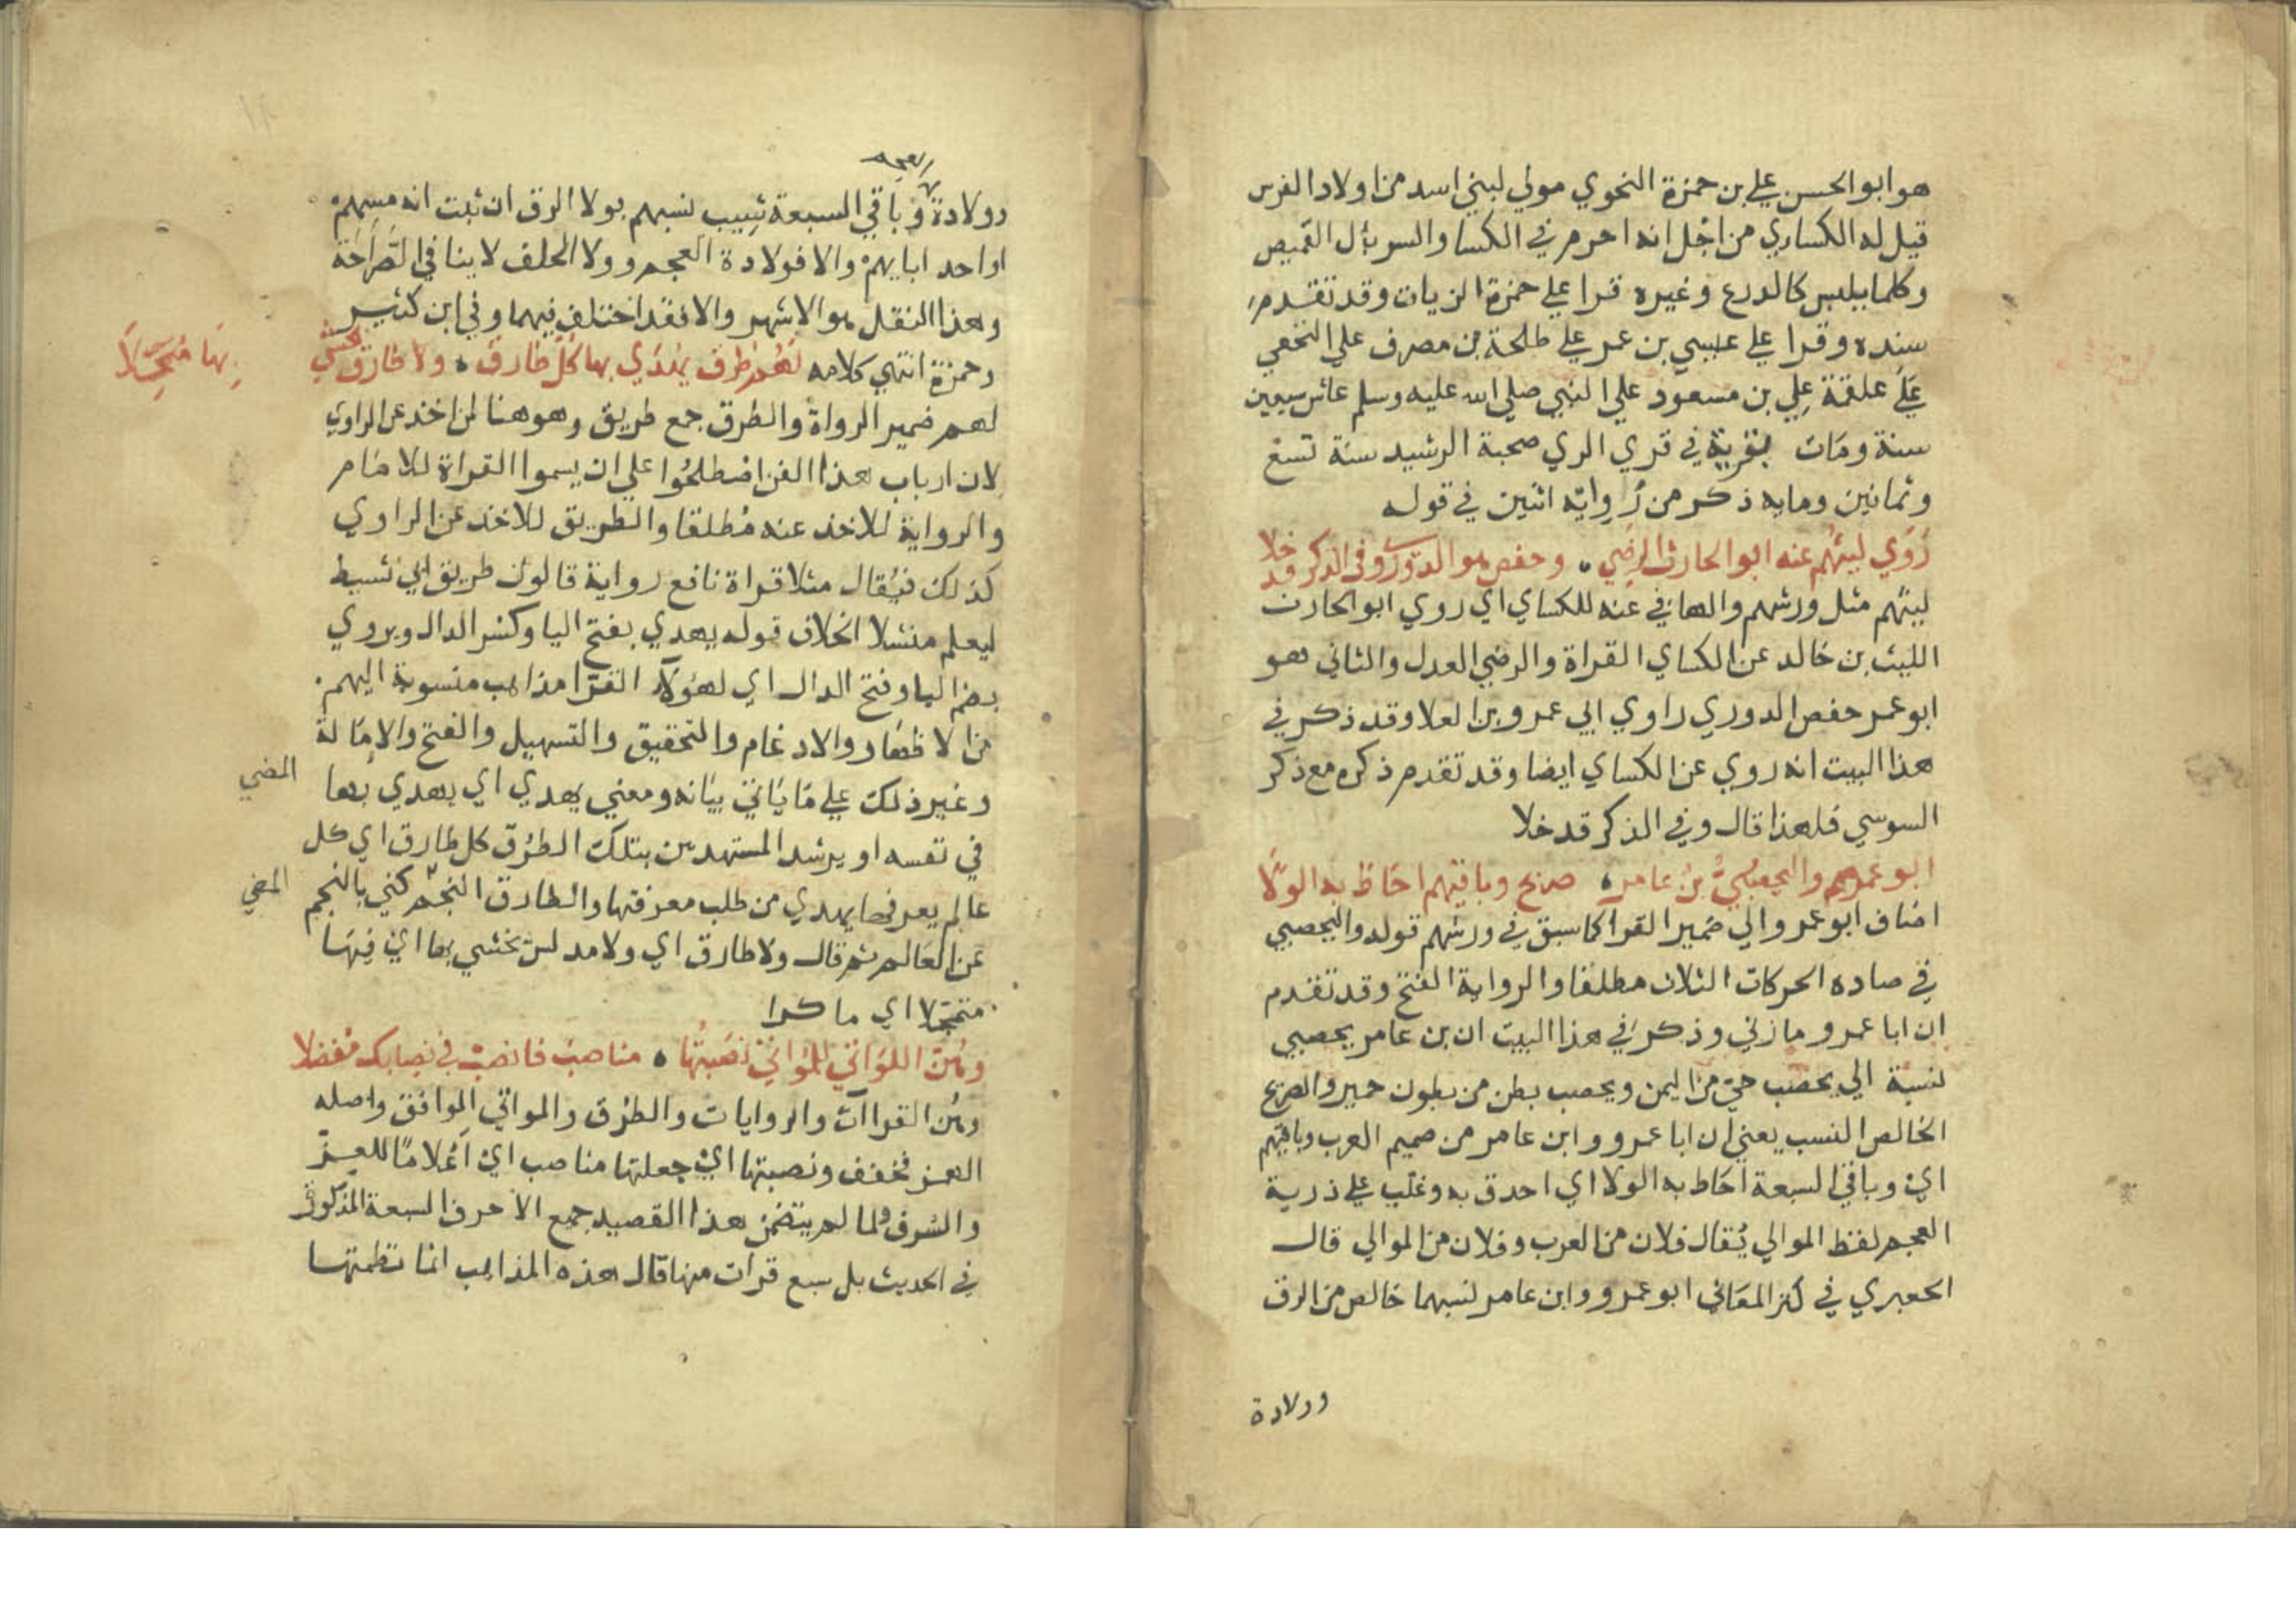 هو ابو الحسن علي بن حمزة النحوي مولي لبني اسد من اولاد الفرس
قيل له الكساري من اجل انه احرم في الكسا والسربال القميص
وكلما يلبس كالدرع وغيره قرا علي حمزة الزيات وقد تقدم
سنده وقرا علي عيسي بن عمر علي طلحة بن مصرف علي النخعي
علي علقمة علي بن مسعود علي النبي صلي الله عليه وسلم عاش سبعين
سنة ومات بقرية في قري الري صحبة الرشيد سنة تسع
وثمانين ومايه ذكر من رواته اثنين في قوله
روي ليثهم عنه ابو الحارث الرضي ٠ وحفص هو الدوري وفي الذكر قد خلا
ليثهم مثل ورشهم والها في عنه للكساي اي روي ابو الحارث
الليث بن خالد عن الكساي القراة والرضي العدل والثاني هو
ابو عمر حفص الدوري راوي ابي عمرو بن العلا وقد ذكر في
هذا البيت انه روي عن الكساي ايضا وقد تقدم ذكره مع ذكر
السوسي فلهذا قال وفي الذكر قد خلا
ابو عمرهم واليحصبي بن عامر ٠ صريح وباقيهم احاط به الولا
اضاف ابو عمرو الي ضمير القرا كما سبق في ورشهم قوله واليحصبي
في صاده الحركات الثلاث مطلقا والرواية الفتح وقد تقدم
ان ابا عمرو مازني وذكر في هذا البيت ان بن عامر يحصبي
نسبة الي يحصب حي من اليمن ويحصب بطن من بطون حمير والصريح
الخالص النسب يعني ان ابا عمرو وابن عامر من صميم العرب وباقيهم
اي وباقي السبعة احاط به الولا اي احدق به وغلب علي ذرية
العجم لفظ الموالي يقال فلان من العرب وفلان من الموالي قال
الجعبري في كنز المعاني ابو عمرو وابن عامر نسبهما خالص من الرق
وولادة
وولادة وباقي السبعة شيب نسبهم بولا الرق ان ثبت انه مسهم
او احد ابايهم والا فولادة العجم وولا الحلف لا ينافي الصراحة
وهذا النقل هو الاشهر والا فقد اختلف فيهما وفي ابن كثير
وحمزة انتهي كلامه لهم طرق يهدي بها كل طارق ٠ ولا طارق يخشي
بها متمحلا
لهم ضمير الرواة والطرق جمع طريق وهو هنا لمن اخذ عن الراوي
لان ارباب هذا الفن اصطلحوا علي ان يسموا القراة للامام
والرواية للاخذ عنه مطلقا والطريق للاخذ عن الراوي
كذلك فيقال مثلا قراة نافع رواية قالون طريق ابي نشيط
ليعلم منشا الخلاف قوله يهدي بفتح اليا وكسر الدال ويروي
بضم اليا وفتح الدال اي لهولا القرا مذاهب منسوبة اليهم
من الاظهار والادغام والتحقيق والتسهيل والفتح والامالة
وغير ذلك علي ما ياتي بيانه ومعني يهدي اي يهدي بها
في نفسه او يرشد المستهدين بتلك الطرق كل طارق اي كل
عالم يعرفها يهدي من طلب معرفتها والطارق النجم كني بالنجم
المضي
المضي
عن العالم ثم قال ولا طارق اي ولا مدلس يخشي بها اي فيها
متمحلا اي ماكرا
وهن اللواتي للمواتي نصبتها ٠ مناصب فانصب في نصابك مفضلا
وهن القراات والروايات والطرق والمواتي الموافق واصله
الهمز فخفف ونصبتها اي جعلتها مناصب اي اعلاما للعز
والشرف ولما لم يتضمن هذا القصيد جمع الاحرف السبعة المذكورة
في الحديث بل سبع قرات منها قال هذه المذاهب انما نظمتها